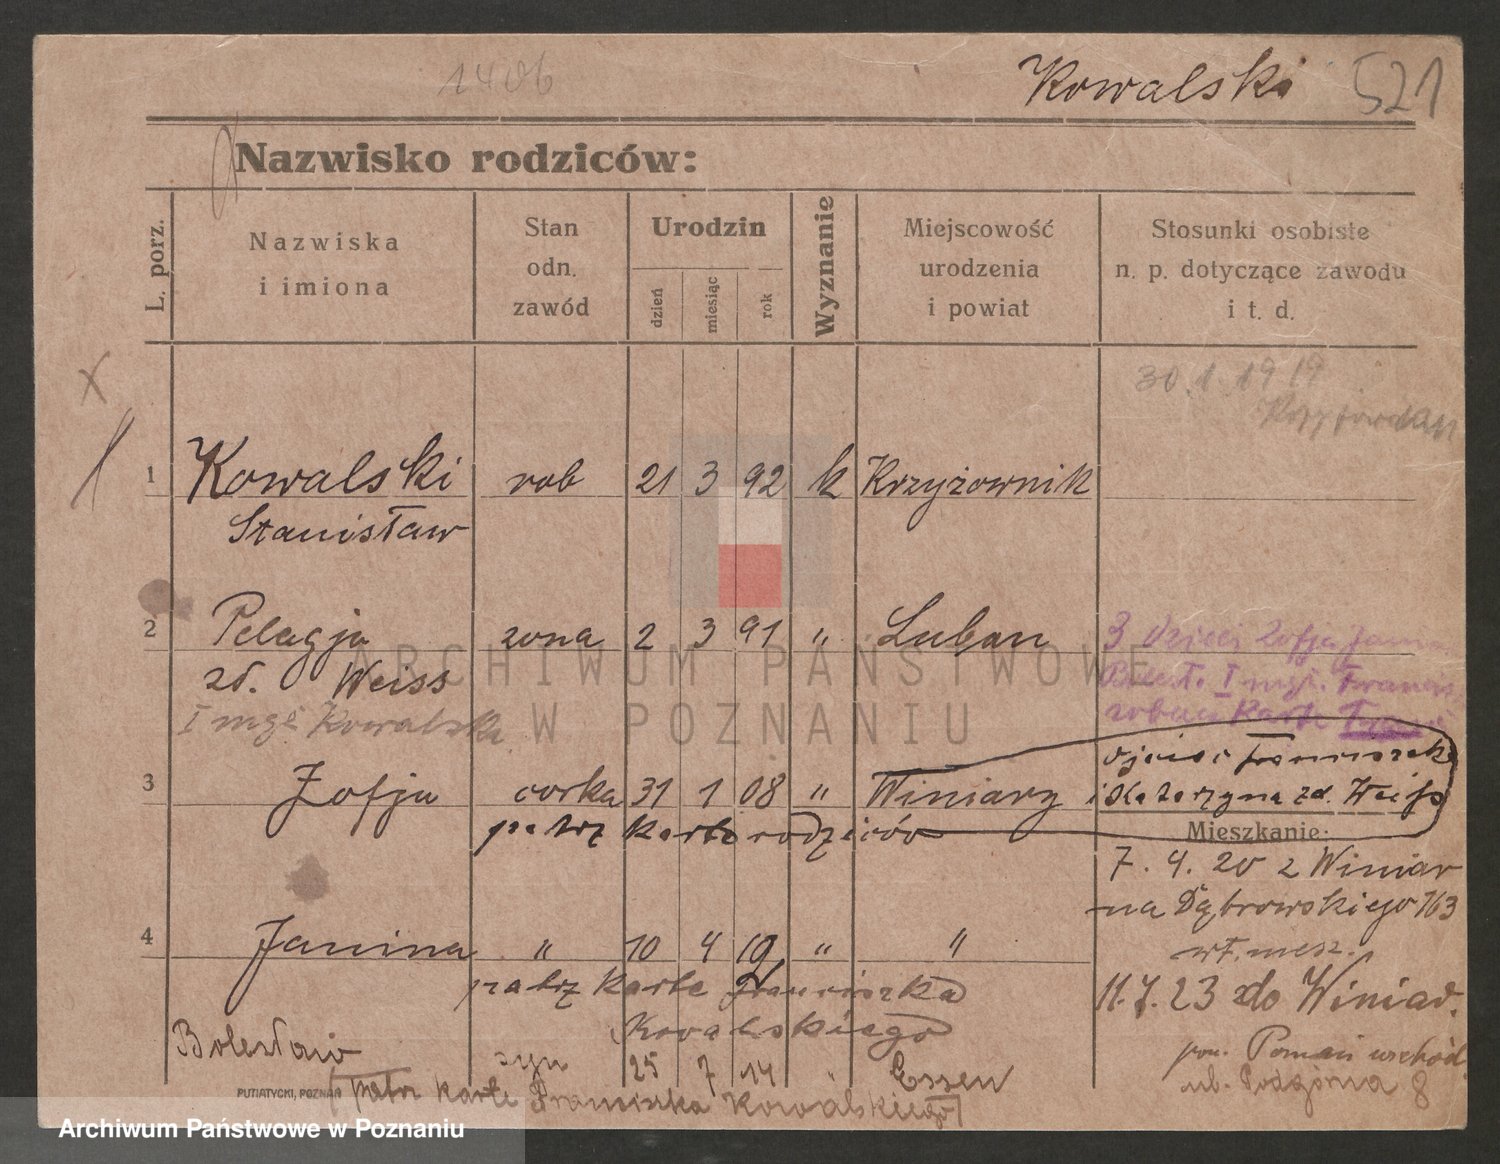 1406
Kowalski 521
Nazwisko rodziców:
L. porz.
Nazwiska
i imiona
Stan
odn.
zawód
Urodzin
dzień
miesiąc
rok
Wyznanie
Miejscowość
urodzenia
i powiat
Stosunki osobiste
n. p. dotyczące zawodu
i t. d.
30.1.1919
1 Kowalski rob 21 3 92 k Krzyżownik
Stanisław
2 Pelagja zona 2 3 91 " Luban
zd. Weiss
I mąż Kowalski
3 dzieci Zofja Janina
Bolesł. I mąż. Francis
zobacz Karte
3 Zofja corka 31 1 08 " Winiary
patrz karte rodziców
ojciec Franciszek
i Katarzyna zd. Weiss
Mieszkanie:
7.4.20 z Winiar
na Dąbrowskiego 163
wł. miesz.
4 Janina " 10 4 19 " "
patrz Karte Franciszka
Kowalskiego
11.7.23 do Winiar.
pow. Poznań wschód.
ul. Podgórna 8
Bolesław syn 25 7 14 " Essen
patrz karte Franciszka Kowalskiego
PUTIATYCKI, POZNAŃ
ARCHIWUM PAŃSTWOWE
W POZNANIU
Archiwum Państwowe w Poznaniu